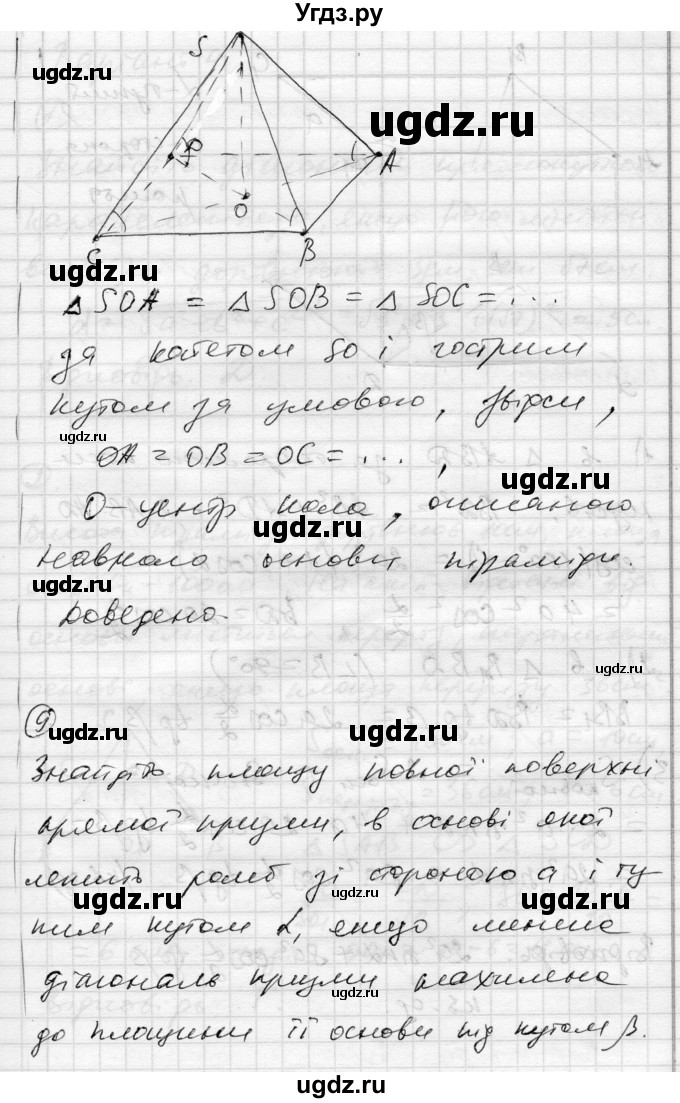 Угдз.ру
ugdz.ru
S
ugdz.ru
A
O
C
B
ugdz.ru
Δ SOA = Δ SOB = Δ SOC = ...
за катетом SO і гострим
кутом за умовою, звідси,
ugdz.ru
OA = OB = OC = ... ,
ugdz.ru
O - центр кола, описаного
ugdz.ru
навколо основи піраміди.
ugdz.ru
Доведено.
ugdz.ru
9
ugdz.ru
Знайдіть площу повної поверхні
прямої призми, в основі якої
лежить ромб зі стороною a і ту
ugdz.ru
пим кутом α, якщо менша
діагональ призми нахилена
ugdz.ru
до площини її основи під кутом β.
ugdz.ru